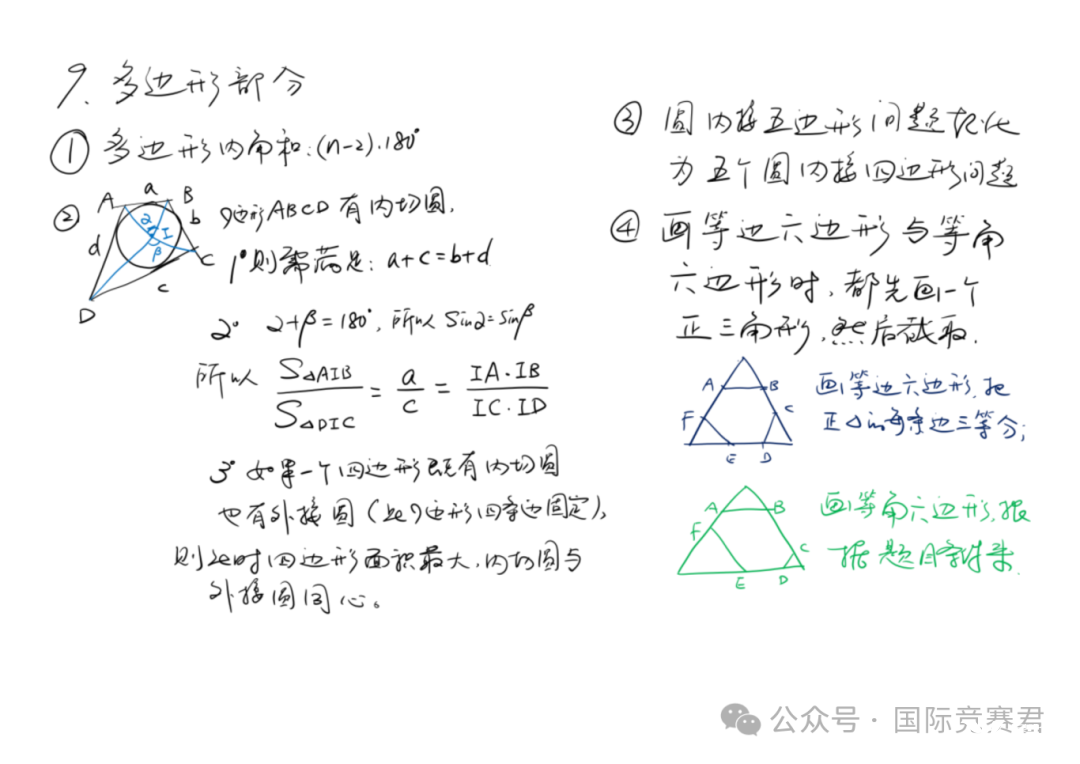 9. 多边形部分
① 多边形内角和:(n-2)·180°
②
A a B
b
d
α I
β
C
c
D
4边形ABCD有内切圆,
1° 则需满足: a+c=b+d
2° α+β=180°, 所以 Sinα=Sinβ
所以 S△AIB/S△DIC = a/c = IA·IB/IC·ID
3° 如果一个四边形既有内切圆
也有外接圆(此4边形四条边固定),
则此时四边形面积最大,内切圆与
外接圆同心。
③ 圆内接五边形问题转化
为五个圆内接四边形问题
④ 画等边六边形与等角
六边形时,都先画一个
正三角形,然后截取.
A B
F C
E D
画等边六边形,把
正△的每条边三等分;
A B
F
C
E D
画等角六边形,根
据题目条件来.
公众号·国际竞赛君